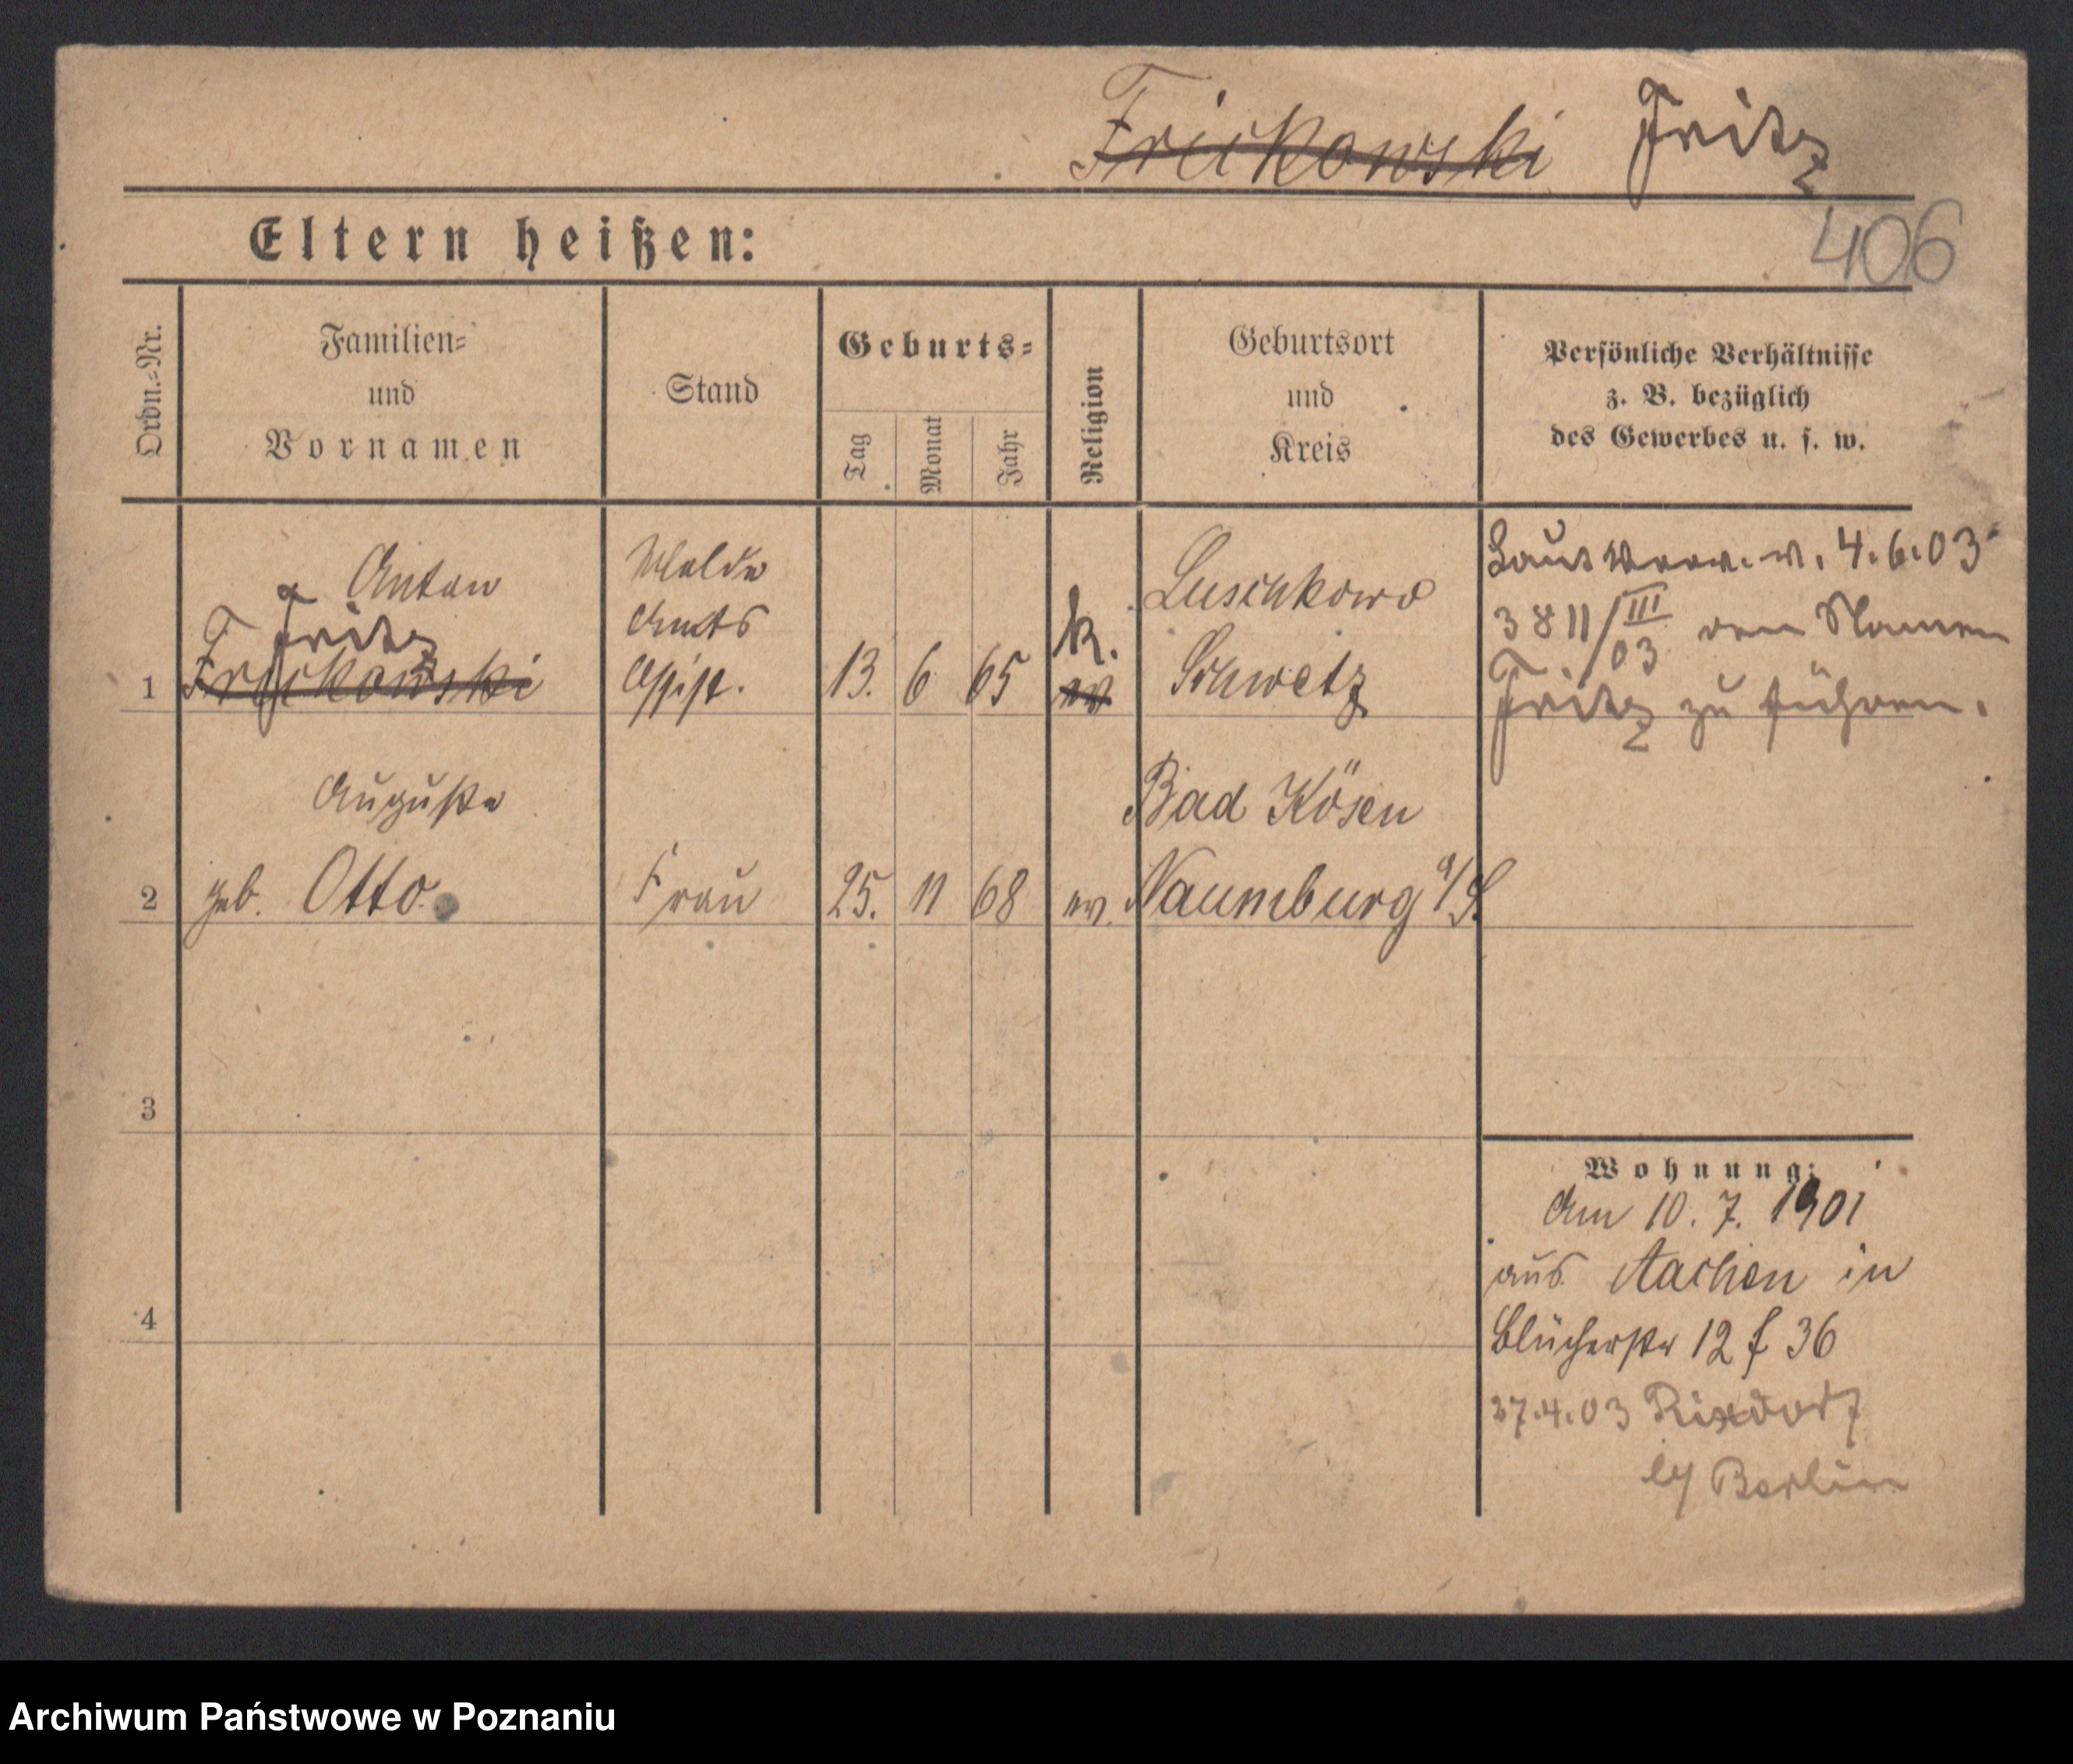 Frickowski Fritz
Eltern heißen:
406
Ordn.-Nr.
Familien-
und
Vornamen
Stand
Geburts-
Tag
Monat
Jahr
Religion
Geburtsort
und
Kreis
Persönliche Verhältnisse
z. B. bezüglich
des Gewerbes u. s. w.
1
Anton
Fritz
Frickowski
Melde
Amts
Assist.
13. 6 65
k.
ev
Luschkowo
Schwetz
Laut v. 4.6.03
3811/III 03 den Namen
Fritz zu führen.
2
Auguste
geb. Otto
Frau
25. 11 68
ev.
Bad Kösen
Naumburg a/S.
3
4
Wohnung:
Am 10. 7. 1901
aus Aachen in
Blücherstr 12 f 36
27.4.03 Rixdorf
b/ Berlin
Archiwum Państwowe w Poznaniu